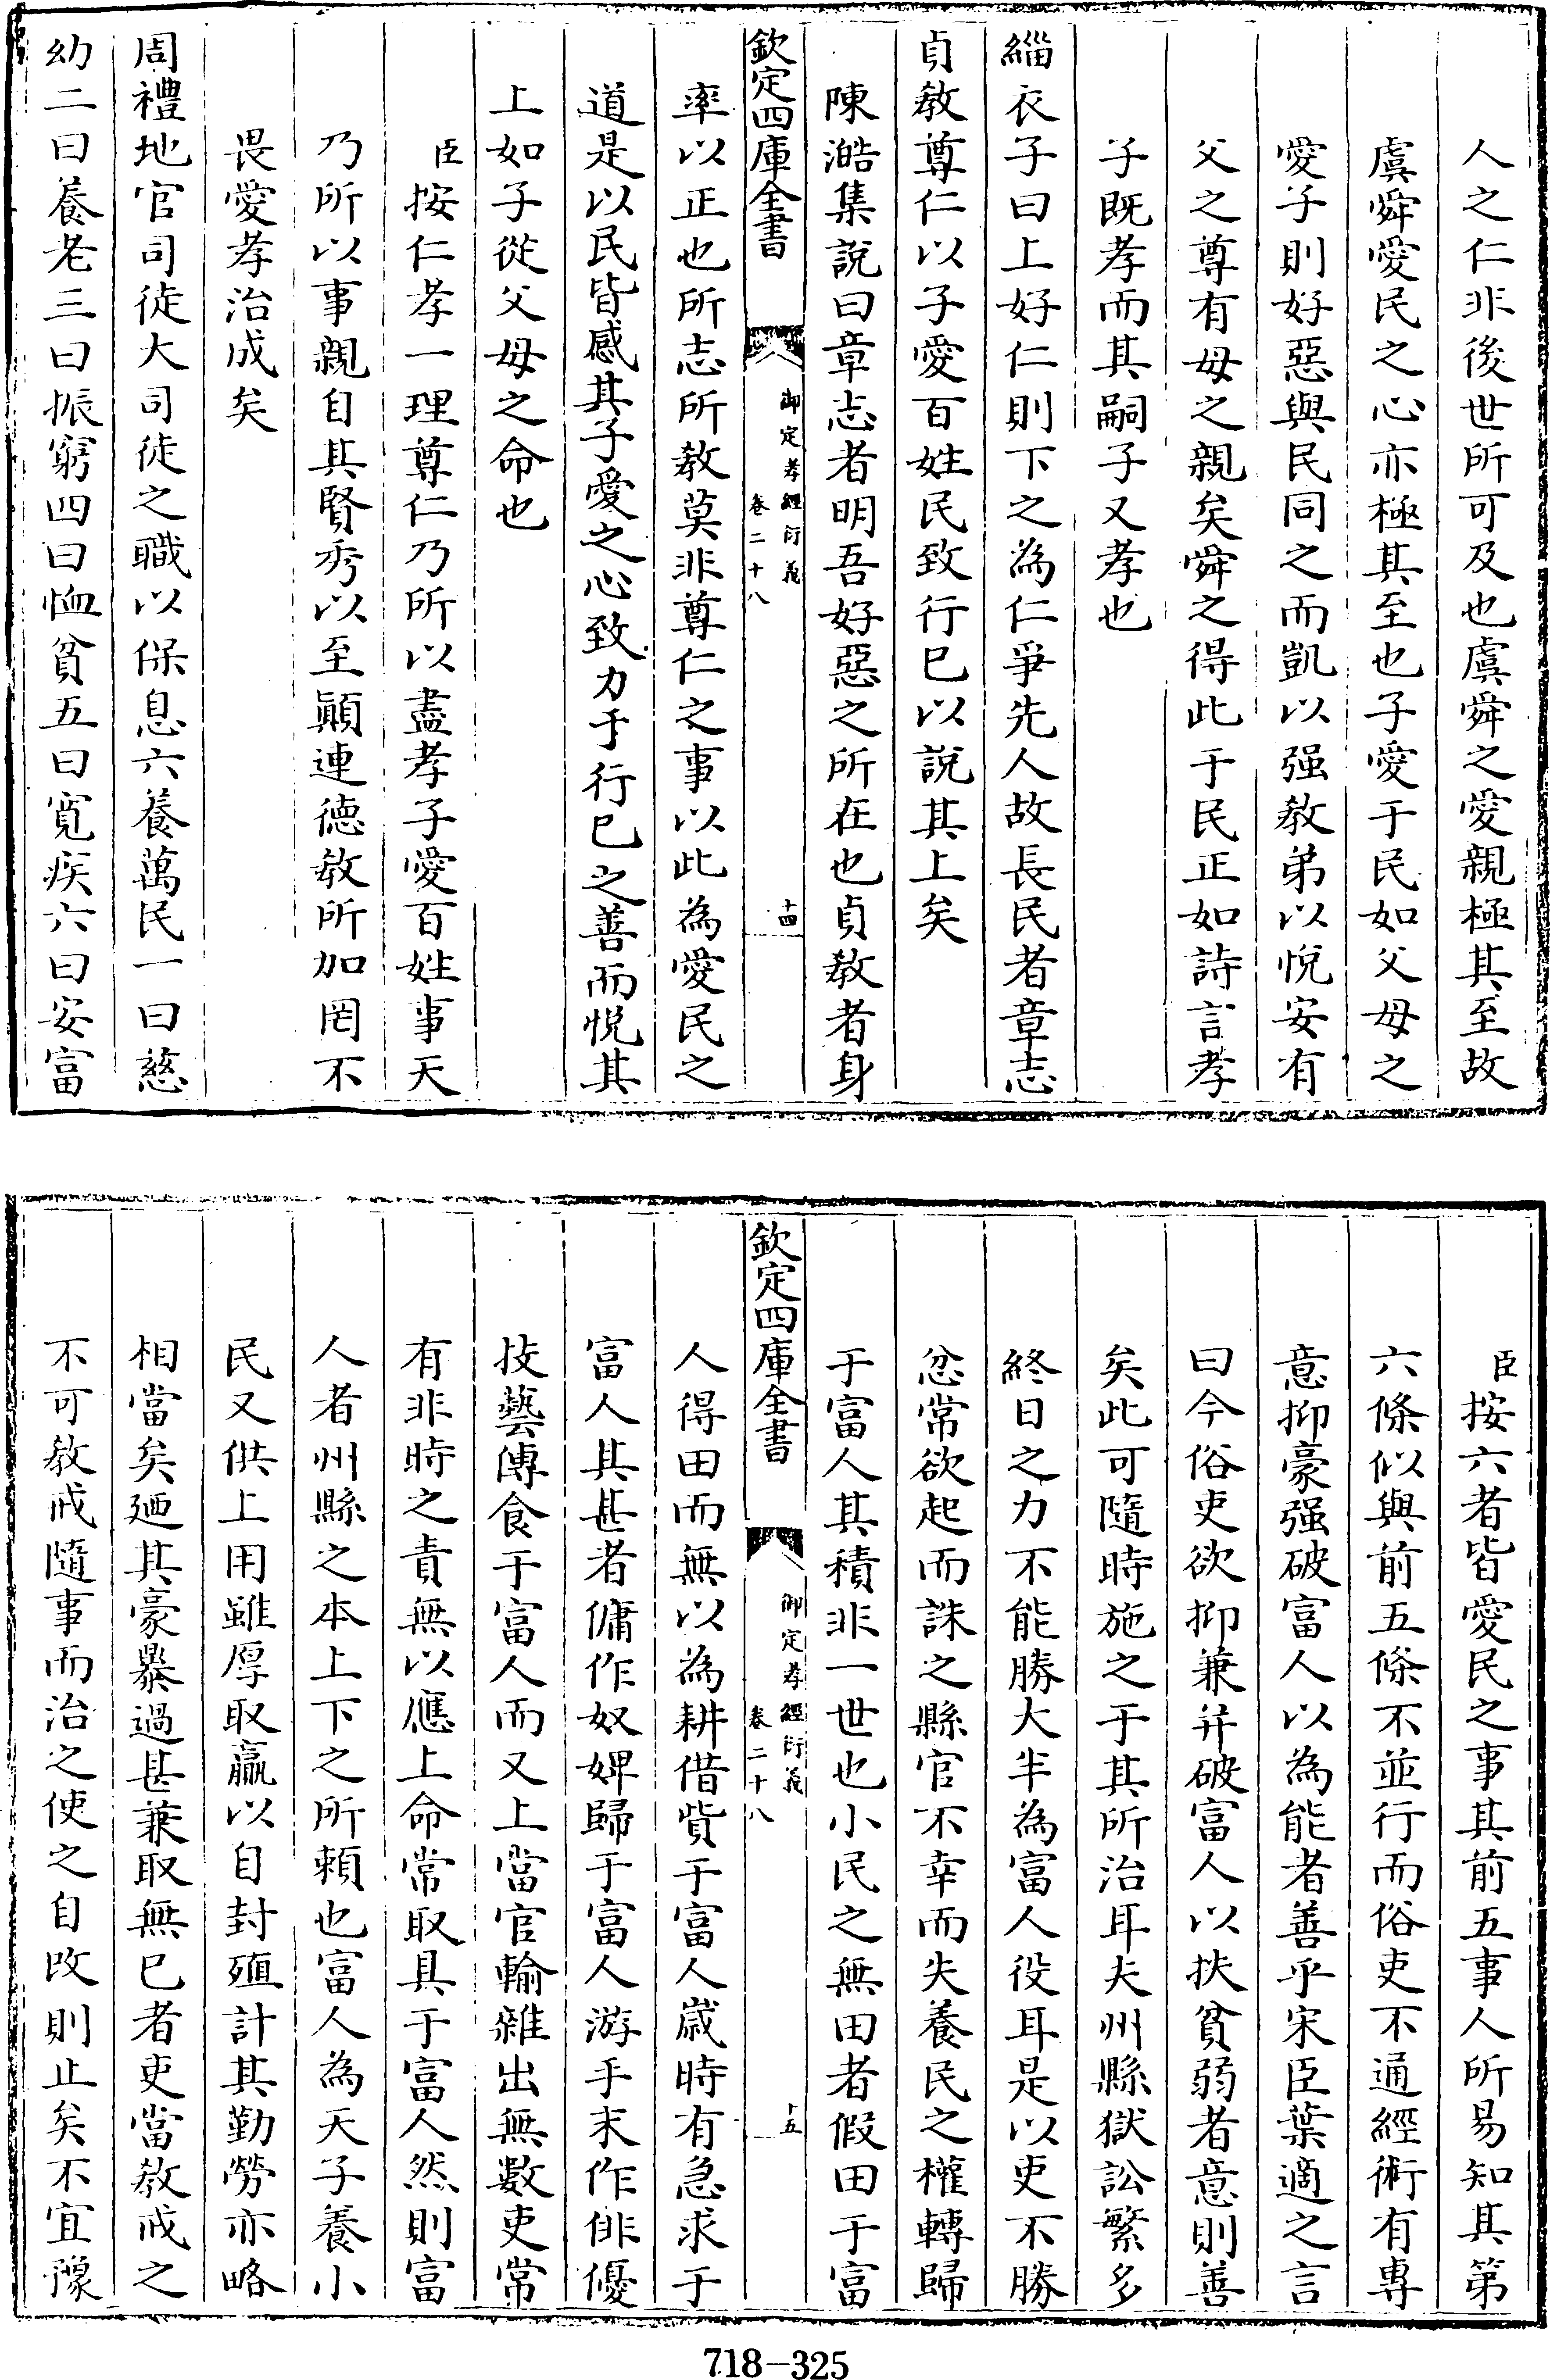 人之仁非後世所可及也虞舜之愛親極其至故
虞舜愛民之心亦極其至也子愛于民如父母之
愛子則好惡與民同之而凱以强教弟以悅安有
父之尊有母之親矣舜之得此于民正如詩言孝
子既孝而其嗣子又孝也
緇衣子曰上好仁則下之為仁爭先人故長民者章志
貞教尊仁以子愛百姓民致行已以說其上矣
陳澔集說曰章志者明吾好惡之所在也貞教者身
欽定四庫全書
御定孝經衍義
卷二十八
十四
率以正也所志所教莫非尊仁之事以此為愛民之
道是以民皆感其子愛之心致力于行已之善而悅其
上如子從父母之命也
臣按仁孝一理尊仁乃所以盡孝子愛百姓事天
乃所以事親自其賢秀以至顚連德教所加罔不
畏愛孝治成矣
周禮地官司徒大司徒之職以保息六養萬民一曰慈
幼二曰養老三曰振窮四曰恤貧五曰寛疾六曰安富
臣按六者皆愛民之事其前五事人所易知其第
六條似與前五條不並行而俗吏不通經術有專
意抑豪强破富人以為能者善乎宋臣葉適之言
曰今俗吏欲抑兼并破富人以扶貧弱者意則善
矣此可隨時施之于其所治耳夫州縣獄訟繁多
終日之力不能勝大半為富人役耳是以吏不勝
忿常欲起而誅之縣官不幸而失養民之權轉歸
于富人其積非一世也小民之無田者假田于富
欽定四庫全書
御定孝經衍義
卷二十八
十五
人得田而無以為耕借貲于富人歲時有急求于
富人其甚者傭作奴婢歸于富人游手末作俳優
技藝傳食于富人而又上當官輸雜出無數吏常
有非時之責無以應上命常取具于富人然則富
人者州縣之本上下之所賴也富人為天子養小
民又供上用雖厚取贏以自封殖計其勤勞亦略
相當矣廼其豪暴過甚兼取無已者吏當教戒之
不可教戒隨事而治之使之自改則止矣不宜豫
718-325